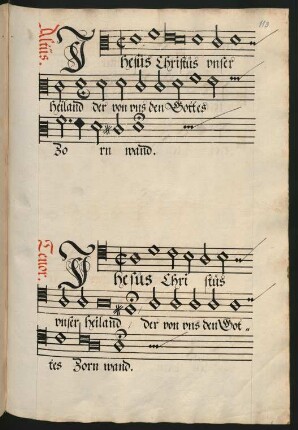 Altus.
Jhesus Christus vnser
Heiland der von vns den Gottes
Zo rn wand.
Tenor.
Jhesus Chri stus
vnser Heiland / der von vns den Got-
tes Zorn wand.